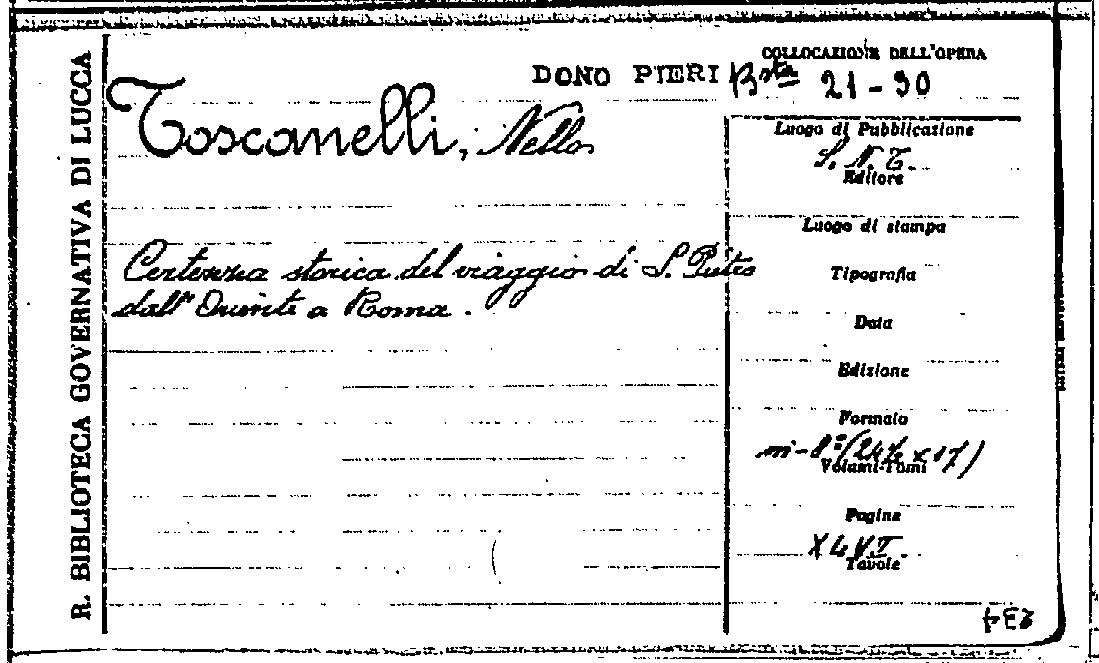 R. BIBLIOTECA GOVERNATIVA DI LUCCA
COLLOCAZIONE DELL'OPERA
DONO PIERI Bsta 21-30
Toscanelli, Nello
Luogo di Pubblicazione
S. N. T.
Editore
Luogo di stampa
Certezza storica del viaggio di S. Pietro
dall'Oriente a Roma.
Tipografia
Data
Edizione
Formato
in-8º (24½ x 17)
Volumi-Tomi
Pagine
XLVI
Tavole